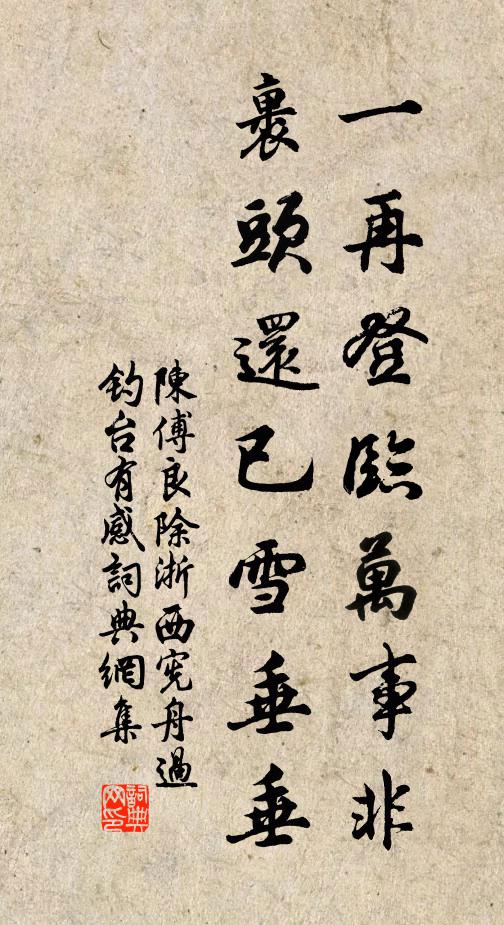 一再登臨萬事非
裹頭還已雪垂垂
陳傅良除浙西宪舟過
釣台有感詞典網集
詞典网印